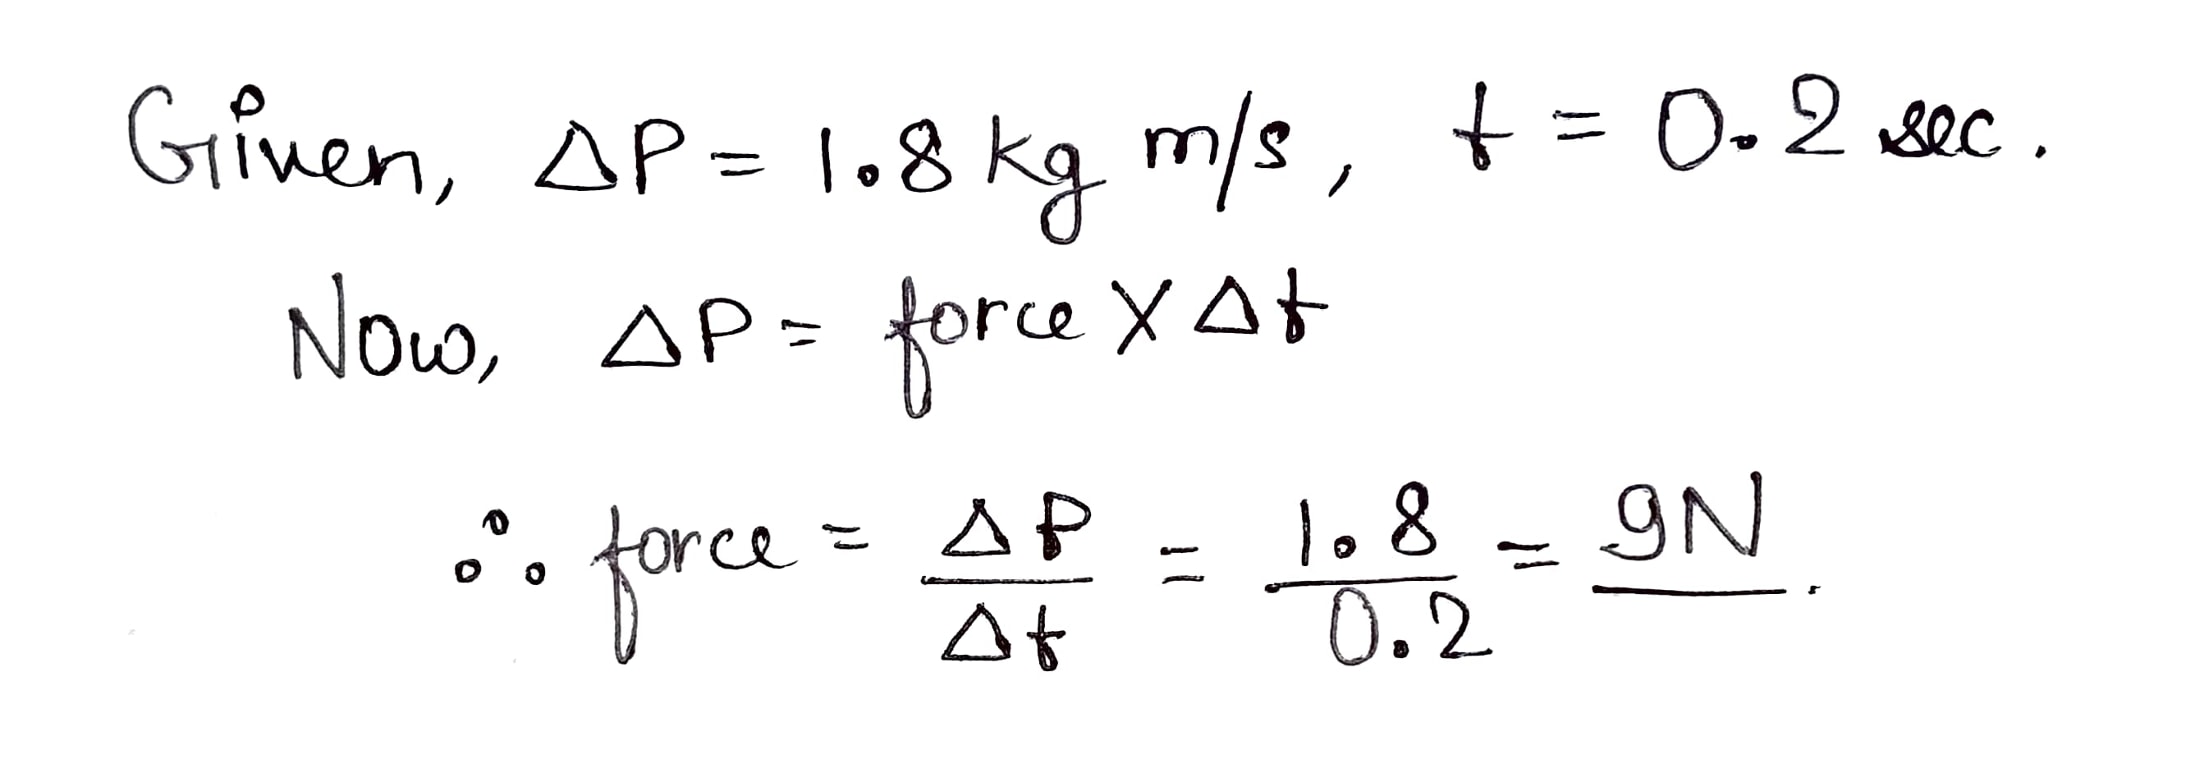 Given, ΔP = 1.8 kg m/s, t = 0.2 sec.
Now, ΔP = force X Δt
∴ force = ΔP/Δt = 1.8/0.2 = 9N.